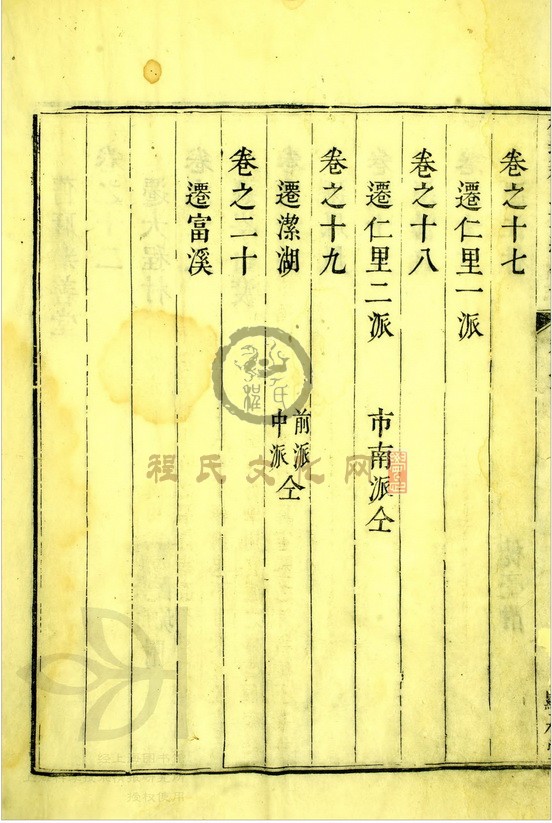 卷之十七
遷仁里一派
卷之十八
遷仁里二派 市南派仝
卷之十九
遷潔湖 前派 中派 仝
卷之二十
遷富溪
程氏文化网
授权使用